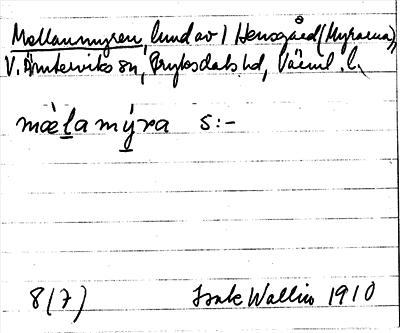 Mellanmyren, lund av 1 Hensgård (Myrarna),
V. Ämterviks sn, Fryksdals hd, Värml. l.
mælamýra s:-
8(7) Isak Wallin 1910